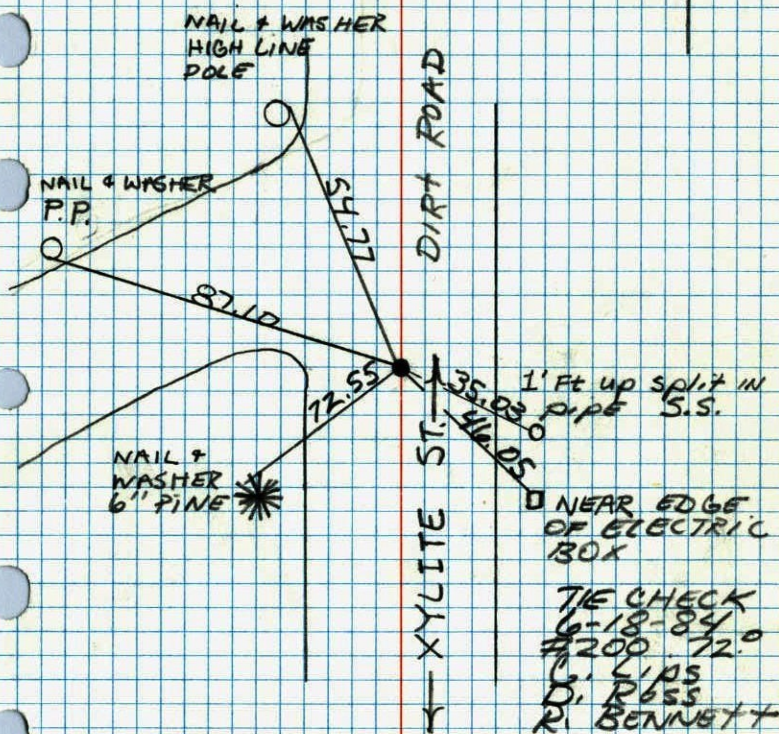 NAIL & WASHER
HIGH LINE
POLE
DIRT ROAD
NAIL & WASHER
P.P.
54.77
87.10
72.55
35.03
46.05
1' Ft up split in
pipe S.S.
NAIL &
WASHER
6" PINE
XYLITE ST.
NEAR EDGE
OF ELECTRIC
BOX
TIE CHECK
6-18-84
#200 72°
C. Lips
D. Ross
R. BENNETT